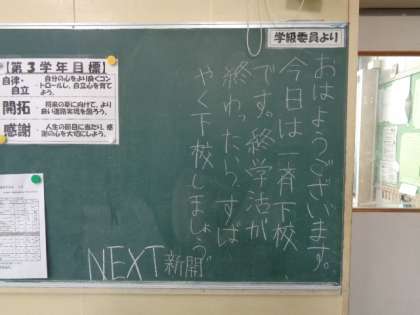 学級委員より
おはようございます。
今日は一斉下校
です。終学活が
終わったら、すば
やく下校しましょう。
NEXT 新開
【第3学年目標】
自律・自立
自分の心をより良くコントロールし、自立心を育てよう。
開拓
将来の夢に向けて、より良い進路実現を図ろう。
感謝
人生の節目に当たり、感謝の心を大切にしよう。